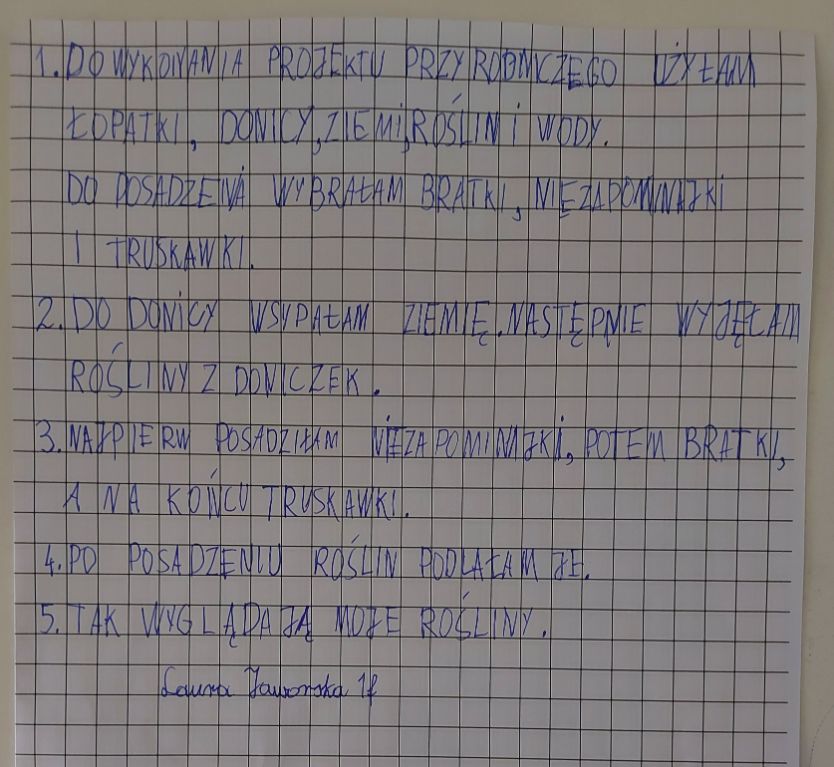 1. DO WYKONANIA PROJEKTU PRZYRODNICZEGO UŻYŁAM
ŁOPATKI, DONICY, ZIEMI, ROŚLIN I WODY.
DO POSADZENIA WYBRAŁAM BRATKI, NIEZAPOMINAJKI
I TRUSKAWKI.
2. DO DONICY WSYPAŁAM ZIEMIĘ. NASTĘPNIE WYJĘŁAM
ROŚLINY Z DONICZEK.
3. NAJPIERW POSADZIŁAM NIEZAPOMINAJKI, POTEM BRATKI,
A NA KOŃCU TRUSKAWKI.
4. PO POSADZENIU ROŚLIN PODLAŁAM JE.
5. TAK WYGLĄDAJĄ MOJE ROŚLINY.
Laura Jaworska 1f